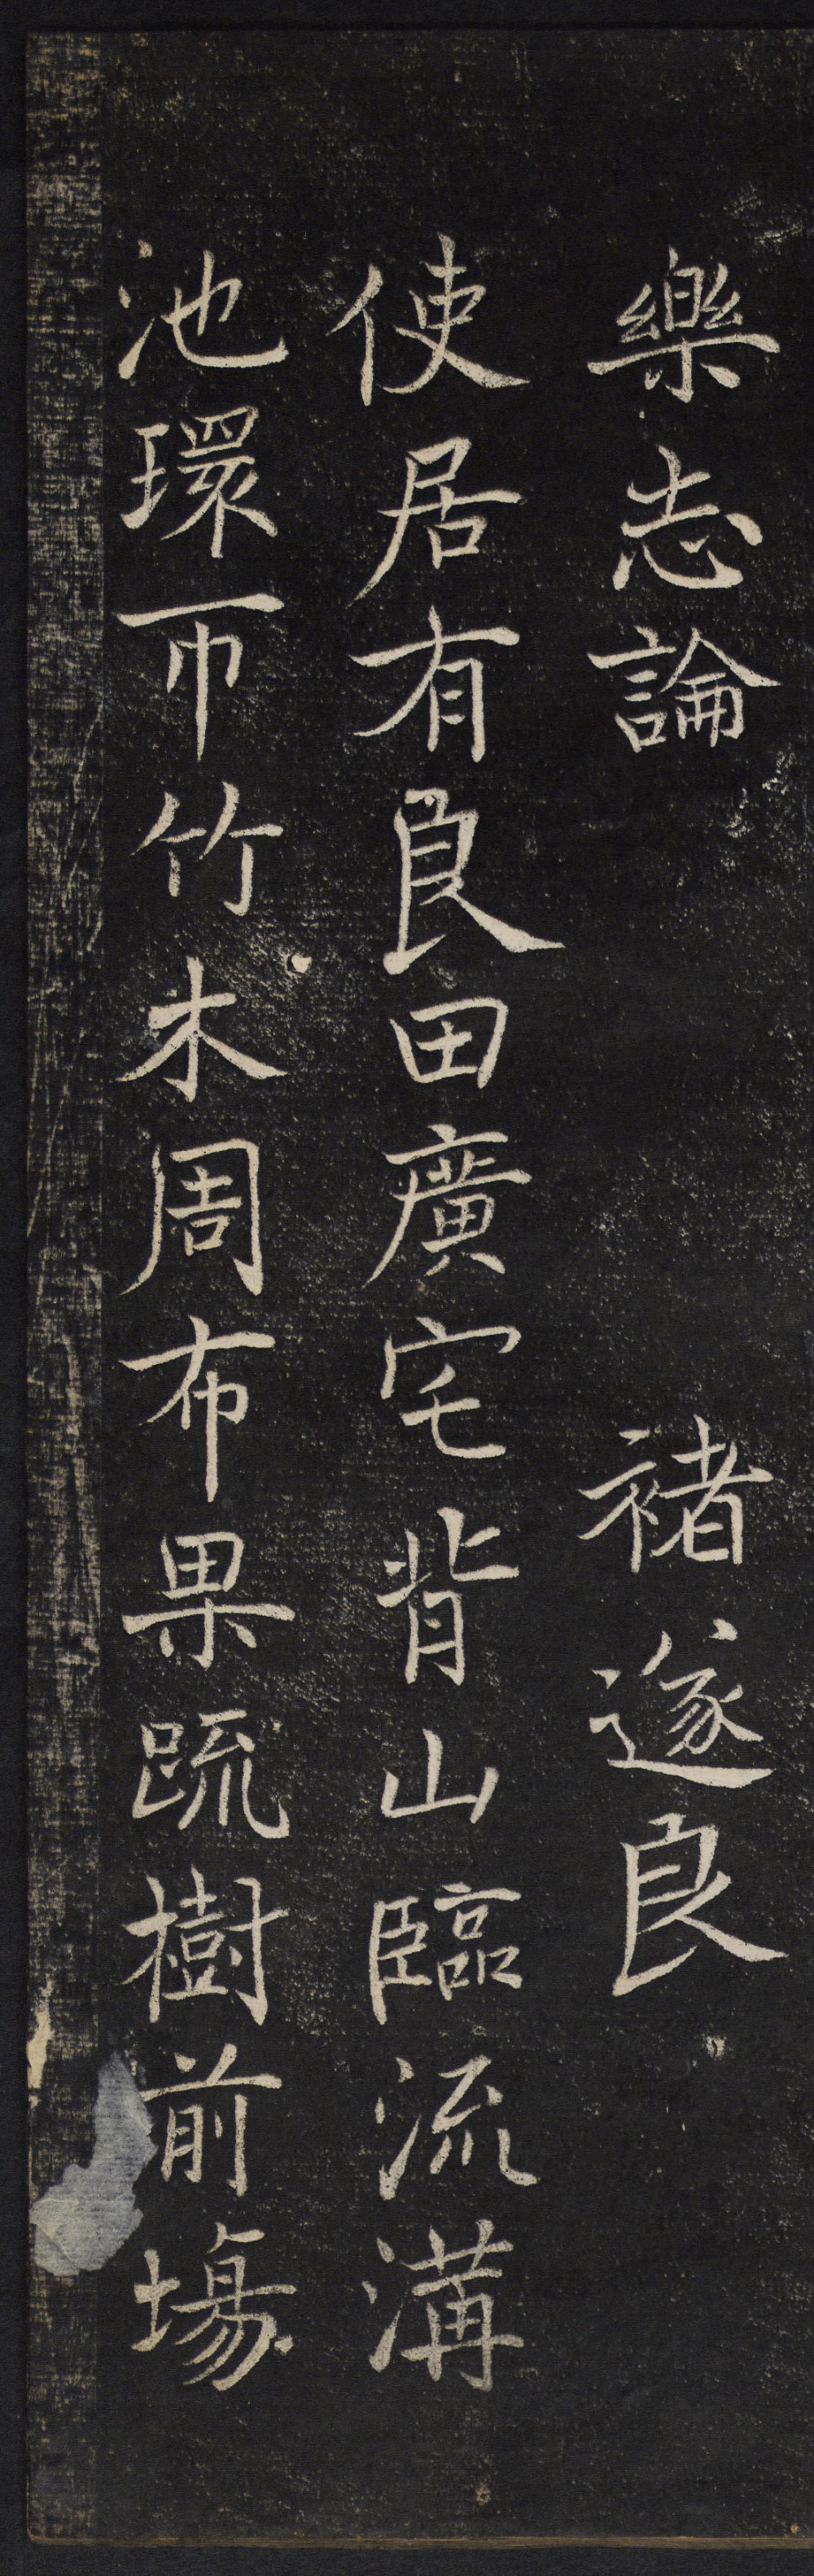 樂志論 褚遂良
使居有良田廣宅背山臨流溝
池環帀竹木周布果䟽樹前場